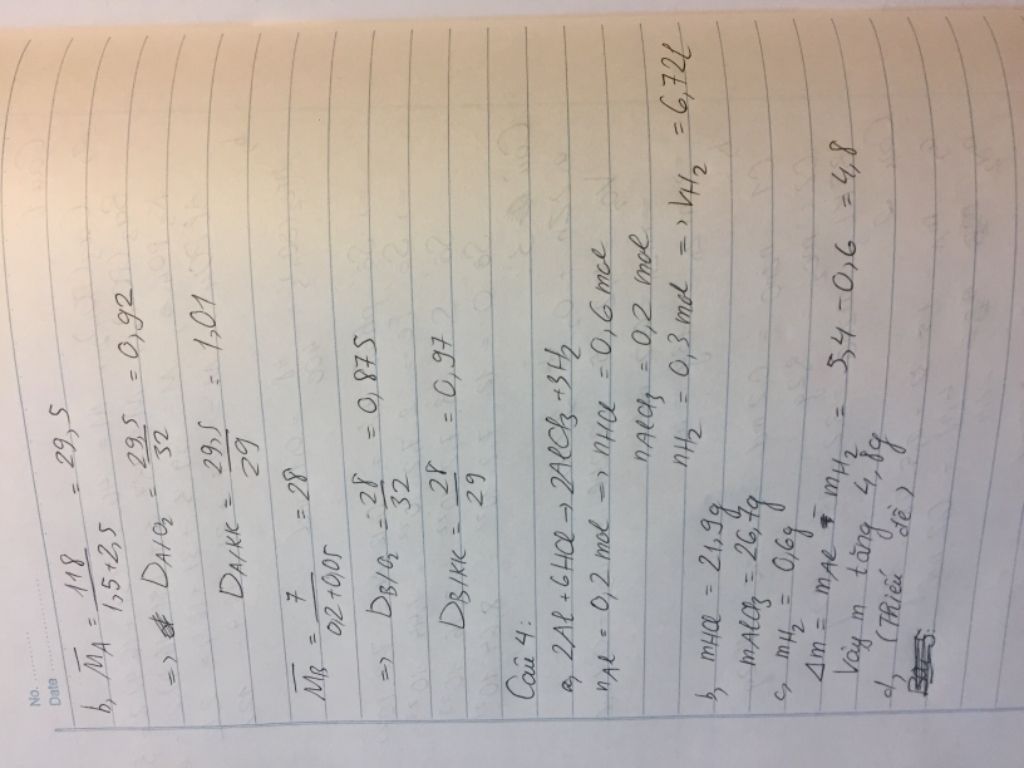 No. ............
Date ............
b, M̅A = 118 / 1,5+2,5 = 29,5
=> DA/O2 = 29,5 / 32 = 0,92
DA/KK = 29,5 / 29 = 1,01
M̅B = 7 / 0,2+0,05 = 28
=> DB/O2 = 28 / 32 = 0,875
DB/KK = 28 / 29 = 0,97
Câu 4:
a, 2Al + 6HCl → 2AlCl3 + 3H2
nAl = 0,2 mol => nHCl = 0,6 mol
nAlCl3 = 0,2 mol
nH2 = 0,3 mol => VH2 = 6,72l
b, mHCl = 21,9g
mAlCl3 = 26,7g
c, mH2 = 0,6g
Δm = mAl - mH2 = 5,4 - 0,6 = 4,8
Vậy m tăng 4,8g
d, (Thiếu đề)